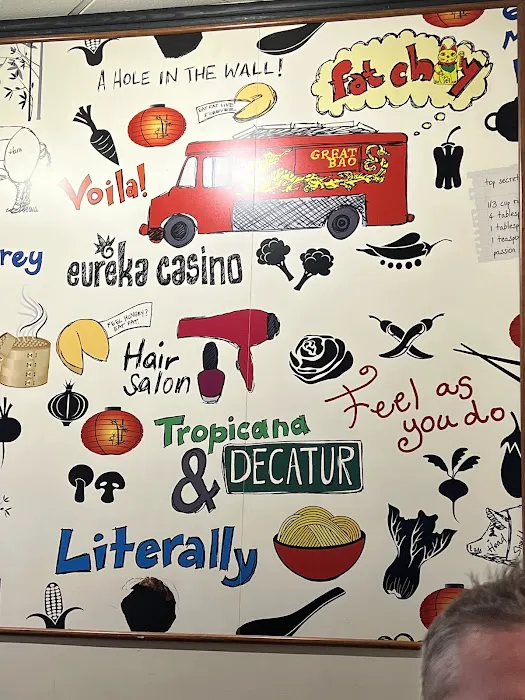 A HOLE IN THE WALL!
fat choy
EAT FAT LIVE
FOREVER
GREAT
BAO
Ham
Voila!
top secret
1/3 cup
4 tables
1 tables
1 teaspo
passion
rey
eureka casino
FEEL HUNGRY?
EAT FAT.
Hair
Salon
Feel as
you do
Tropicana
& DECATUR
Literally